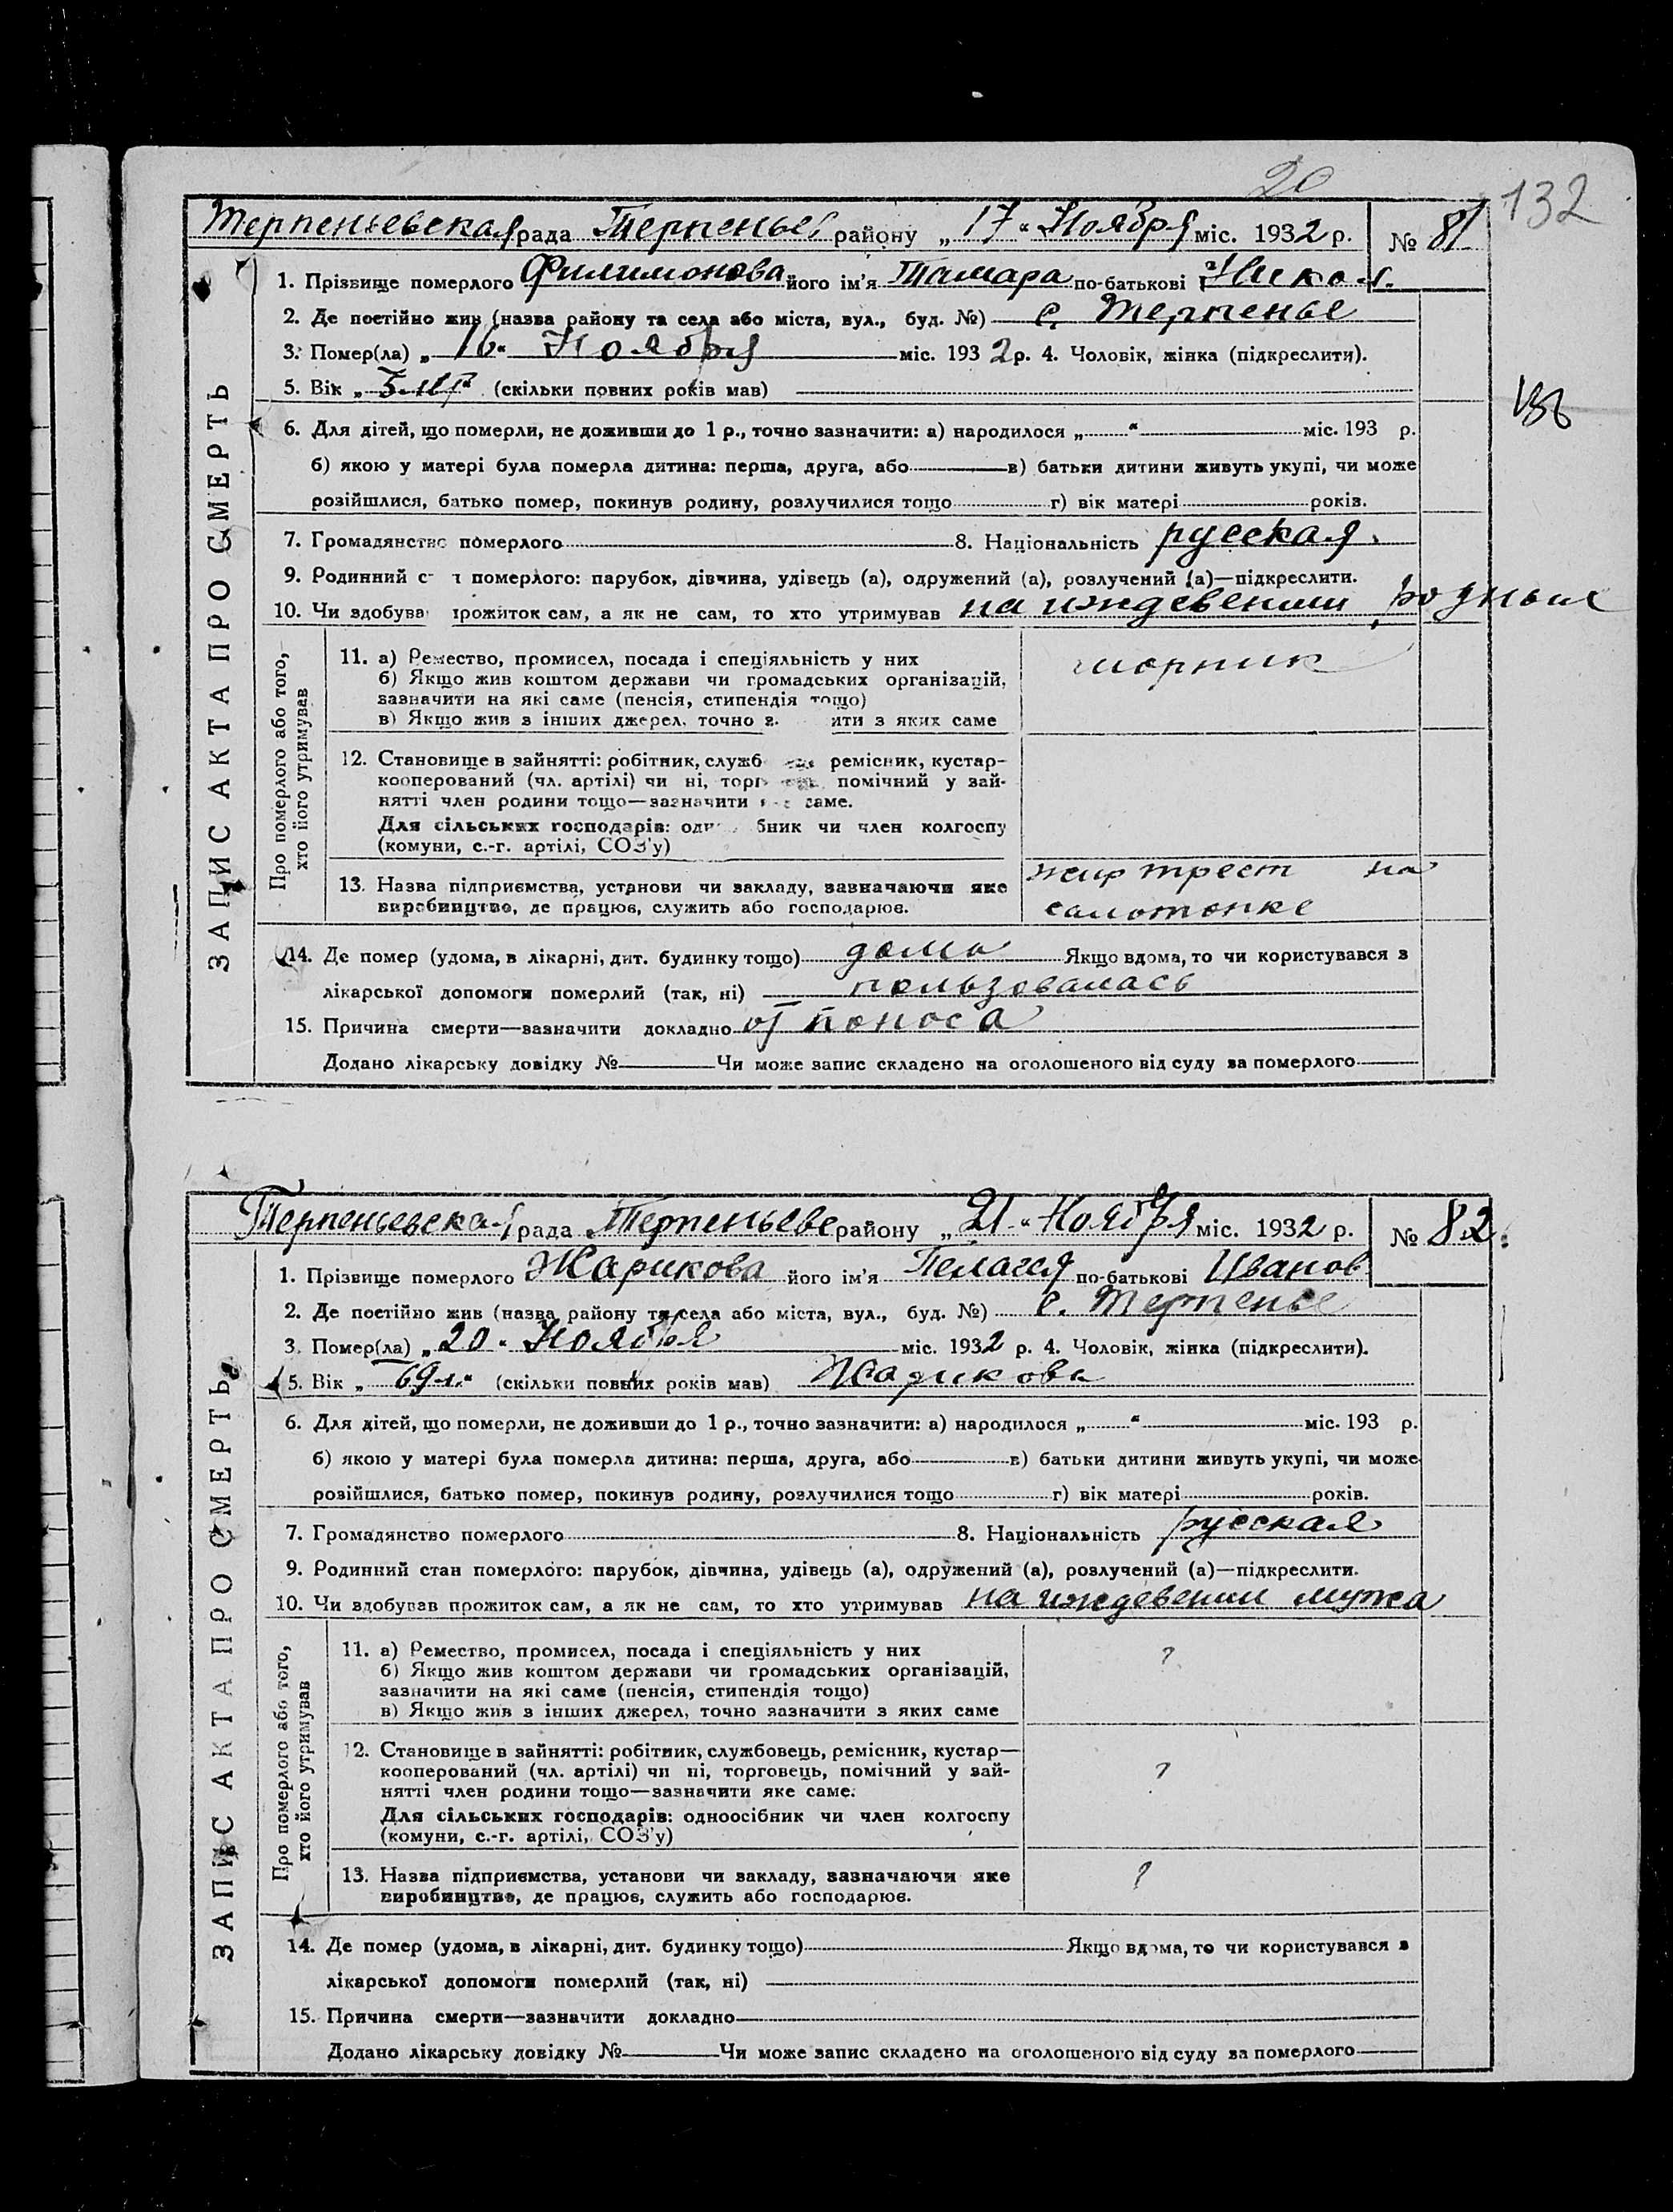 20
132
Терпеньевская рада Терпеньев району „17“ Ноября міс. 1932 р. № 81
1. Прізвище померлого Филимонова його ім'я Тамара по-батькові Никол.
2. Де постійно жив (назва району та села або міста, вул., буд. №) с. Терпенье
3. Помер(ла) „16“ Ноября міс. 1932 р. 4. Чоловік, жінка (підкреслити).
5. Вік „ “ (скільки повних років мав)
6. Для дітей, що померли, не доживши до 1 р., точно зазначити: а) народилося „ “ міс. 193 р.
б) якою у матері була померла дитина: перша, друга, або в) батьки дитини живуть укупі, чи може
розійшлися, батько помер, покинув родину, розлучилися тощо г) вік матері років.
7. Громадянство померлого 8. Національність русская
9. Родинний с т померлого: парубок, дівчина, удівець (а), одружений (а), розлучений (а)—підкреслити.
10. Чи здобува прожиток сам, а як не сам, то хто утримував на иждевении родных
ЗАПИС АКТА ПРО СМЕРТЬ
Про померлого або того,
хто його утримував
11. а) Ремество, промисел, посада і спеціяльність у них шорник
б) Якщо жив коштом держави чи громадських організацій,
зазначити на які саме (пенсія, стипендія тощо)
в) Якщо жив з інших джерел, точно з ити з яких саме
12. Становище в зайнятті: робітник, служб ремісник, кустар-
кооперований (чл. артілі) чи ні, торг помічний у зай-
нятті член родини тощо—зазначити саме.
Для сільських господарів: од бник чи член колгоспу
(комуни, с.-г. артілі, СОЗ'у)
13. Назва підприємства, установи чи закладу, зазначаючи яке жир трест на
виробництво, де працює, служить або господарює. салотопке
14. Де помер (удома, в лікарні, дит. будинку тощо) дома Якщо вдома, то чи користувався з
лікарської допомоги померлий (так, ні) пользовалась
15. Причина смерти—зазначити докладно от поноса
Додано лікарську довідку № Чи може запис складено на оголошеного від суду за померлого
Терпеньевская рада Терпеньевс району „21“ Ноября міс. 1932 р. № 82
1. Прізвище померлого Жарикова його ім'я Пелагея по-батькові Иванов
2. Де постійно жив (назва району та села або міста, вул., буд. №) с. Терпенье
3. Помер(ла) „20“ Ноября міс. 1932 р. 4. Чоловік, жінка (підкреслити).
5. Вік „69 л.“ (скільки повних років мав) Жарикова
6. Для дітей, що померли, не доживши до 1 р., точно зазначити: а) народилося „ “ міс. 193 р.
б) якою у матері була померла дитина: перша, друга, або в) батьки дитини живуть укупі, чи може
розійшлися, батько помер, покинув родину, розлучилися тощо г) вік матері років.
7. Громадянство померлого 8. Національність русская
9. Родинний стан померлого: парубок, дівчина, удівець (а), одружений (а), розлучений (а)—підкреслити.
10. Чи здобував прожиток сам, а як не сам, то хто утримував на иждевении мужа
ЗАПИС АКТА ПРО СМЕРТЬ
Про померлого або того,
хто його утримував
11. а) Ремество, промисел, посада і спеціяльність у них ?
б) Якщо жив коштом держави чи громадських організацій,
зазначити на які саме (пенсія, стипендія тощо)
в) Якщо жив з інших джерел, точно зазначити з яких саме
12. Становище в зайнятті: робітник, службовець, ремісник, кустар—
кооперований (чл. артілі) чи ні, торговець, помічний у зай- ?
нятті член родини тощо—зазначити яке саме.
Для сільських господарів: одноосібник чи член колгоспу
(комуни, с.-г. артілі, СОЗ'у)
13. Назва підприємства, установи чи закладу, зазначаючи яке ?
виробництво, де працює, служить або господарює.
14. Де помер (удома, в лікарні, дит. будинку тощо) Якщо вдома, то чи користувався з
лікарської допомоги померлий (так, ні)
15. Причина смерти—зазначити докладно
Додано лікарську довідку № Чи може запис складено на оголошеного від суду за померлого